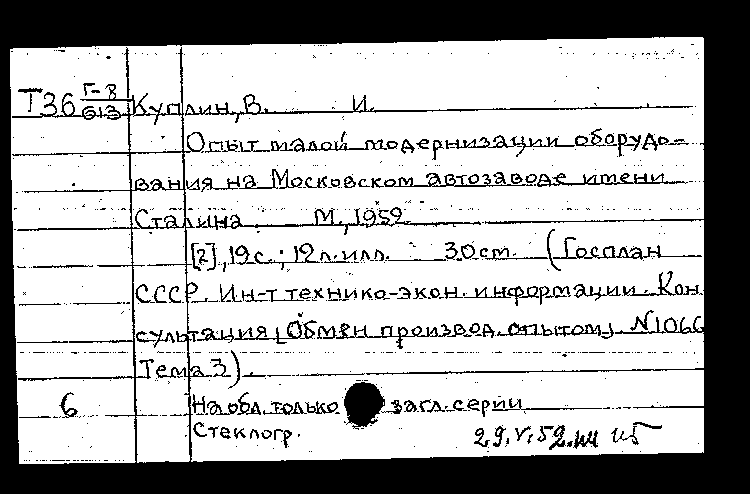 Т36 Г-8/613 Куплин, В. И.
Опыт малой модернизации оборудо-
вания на Московском автозаводе имени
Сталина. М., 1952.
[2], 19 с.; 12 л. илл. 30 см. (Госплан
СССР. Ин-т технико-экон. информации. Кон
сультация „Обмен производ. опытом" N 1066
Тема 3).
6 На обл. только загл. серии
Стеклогр.
29.V.52.